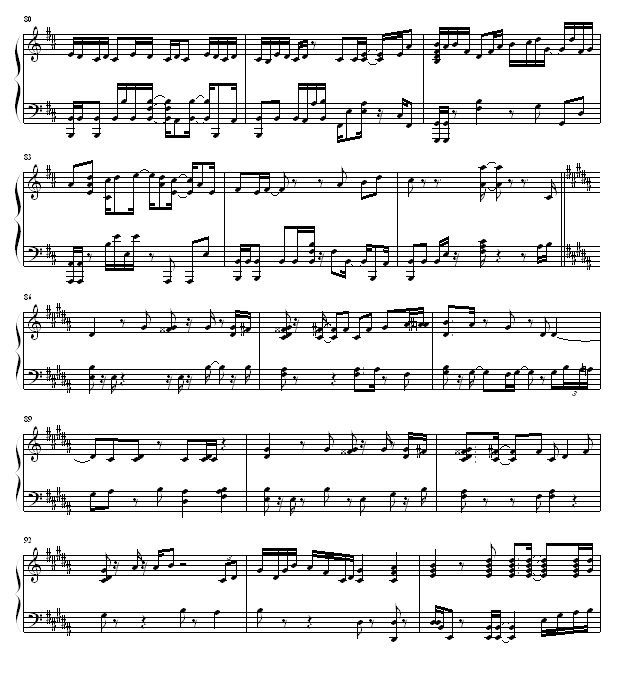 80
83
86
3
89
92